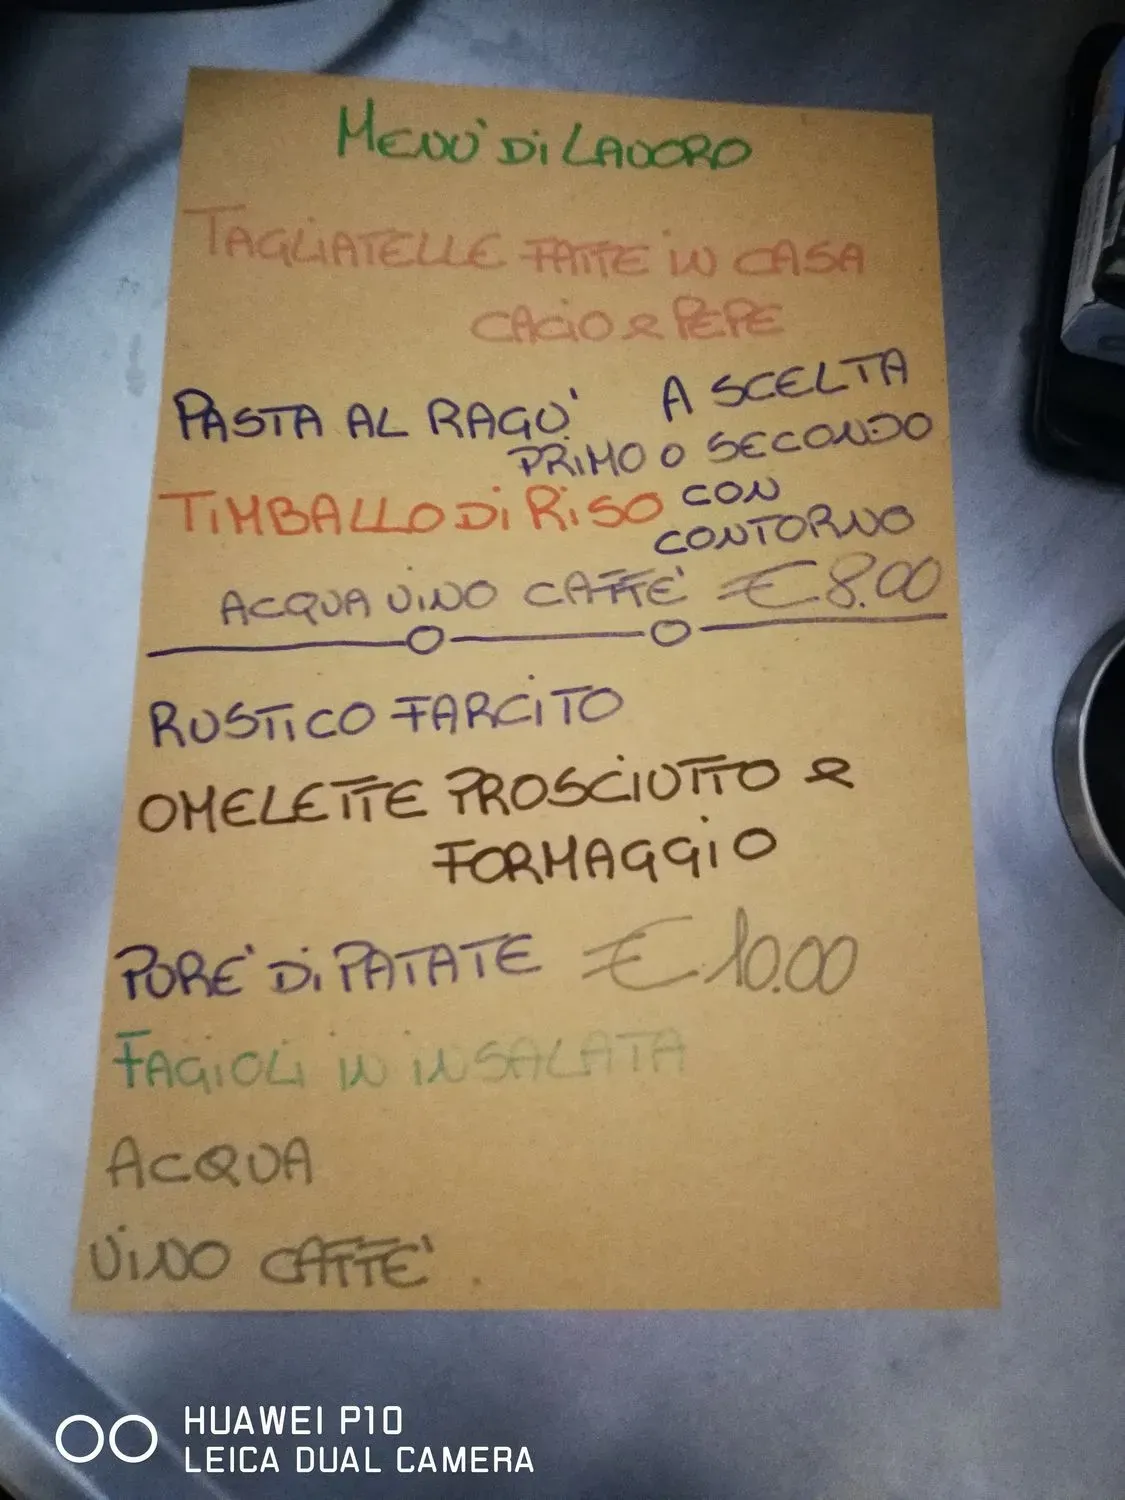 MENU' DI LAVORO
TAGLIATELLE FATTE IN CASA
CACIO e PEPE
PASTA AL RAGU' A SCELTA
PRIMO O SECONDO
TIMBALLO DI RISO CON
CONTORNO
ACQUA VINO CAFFE' €8.00
RUSTICO FARCITO
OMELETTE PROSCIUTTO e
FORMAGGIO
PURE' DI PATATE €10.00
FAGIOLI IN INSALATA
ACQUA
VINO CAFFE'.
HUAWEI P10
LEICA DUAL CAMERA